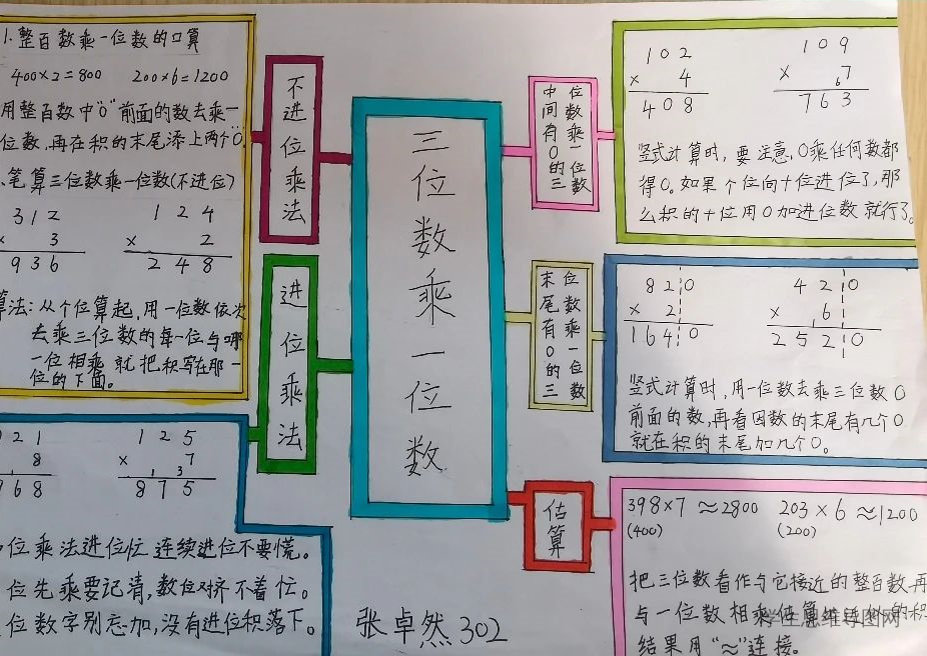 1.整百数乘一位数的口算
400×2=800 200×6=1200
用整百数中"0"前面的数去乘一
位数,再在积的末尾添上两个"0
、笔算三位数乘一位数(不进位)
312
× 3
936
124
× 2
248
算法:从个位算起,用一位数依次
去乘三位数的每一位与哪
一位相乘就把积写在那一
位的下面。
不进位乘法
进位乘法
21
8
968
125
× 7
1 3
875
位乘法进位忙 连续进位不要慌。
位先乘要记清,数位对齐不着忙。
位数字别忘加,没有进位积落下。
三位数乘一位数
张卓然302
中间有0的三
位数乘一位数
102
× 4
408
109
× 7
6
763
竖式计算时,要注意,0乘任何数都
得0。如果个位向十位进位了,那
么积的十位用0加进位数就行了。
末尾有0的三
位数乘一位数
820
× 2
1640
420
× 6
1
2520
竖式计算时,用一位数去乘三位数0
前面的数,再看因数的末尾有几个0
就在积的末尾加几个0。
估算
398×7≈2800 203×6≈1200
(400) (200)
把三位数看作与它接近的整百数,再
与一位数相乘,估算 的积
结果用"≈"连接。
学生思维导图网